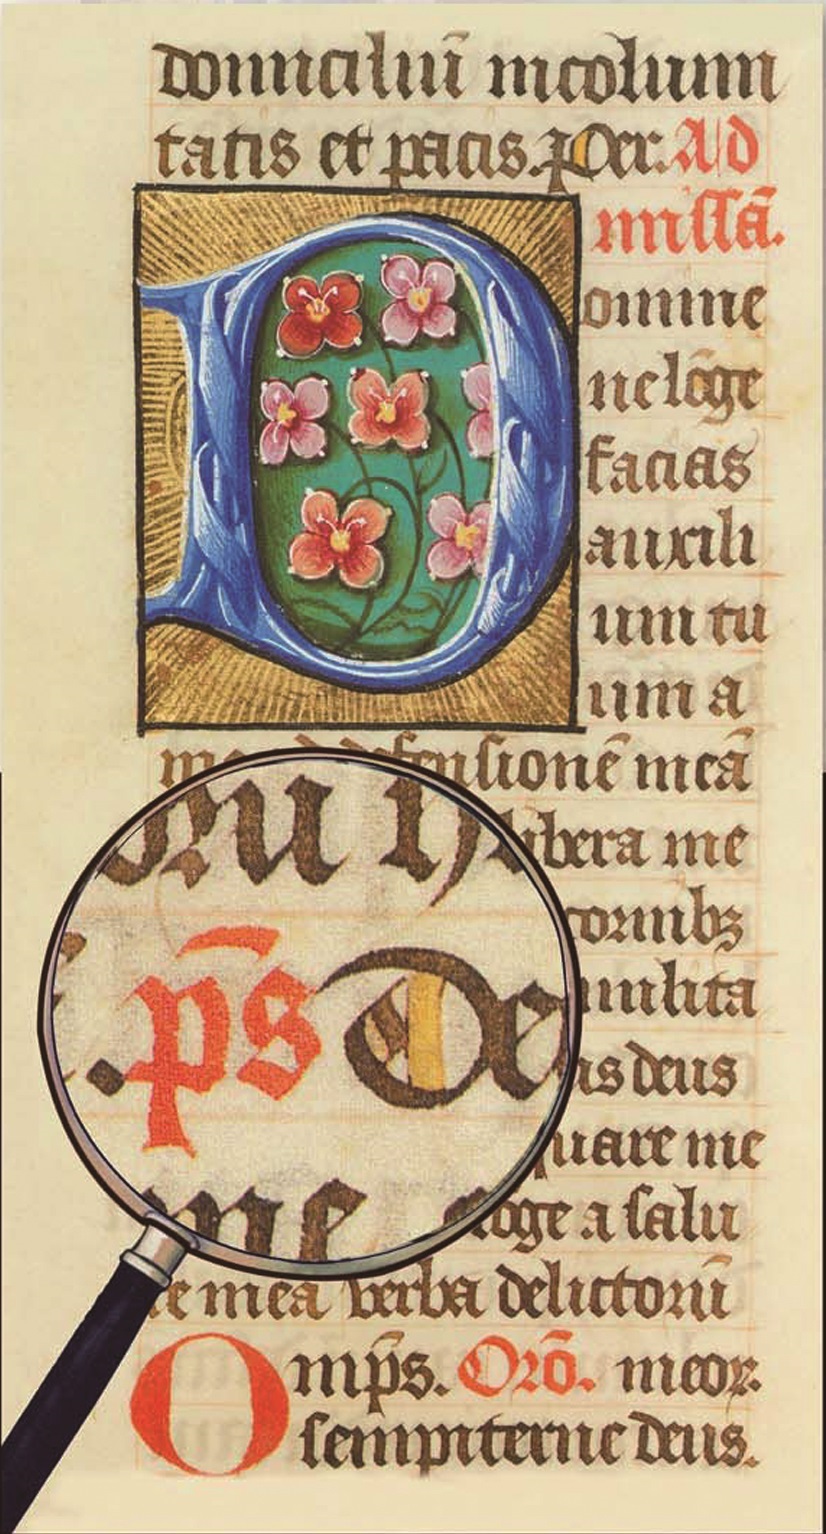 domiciliū incolum
tatis et pacis. Per. Ad
missā.
omine
ne lōge
facias
auxili
um tu
um a
me ad defensionē meā
libera me
cornibꝫ
humilita
deus
quare me
lōge a salu
te mea verba delictorū
Omp̄s. Orō. meoꝝ.
sempiterne deus.
p̄s De
me